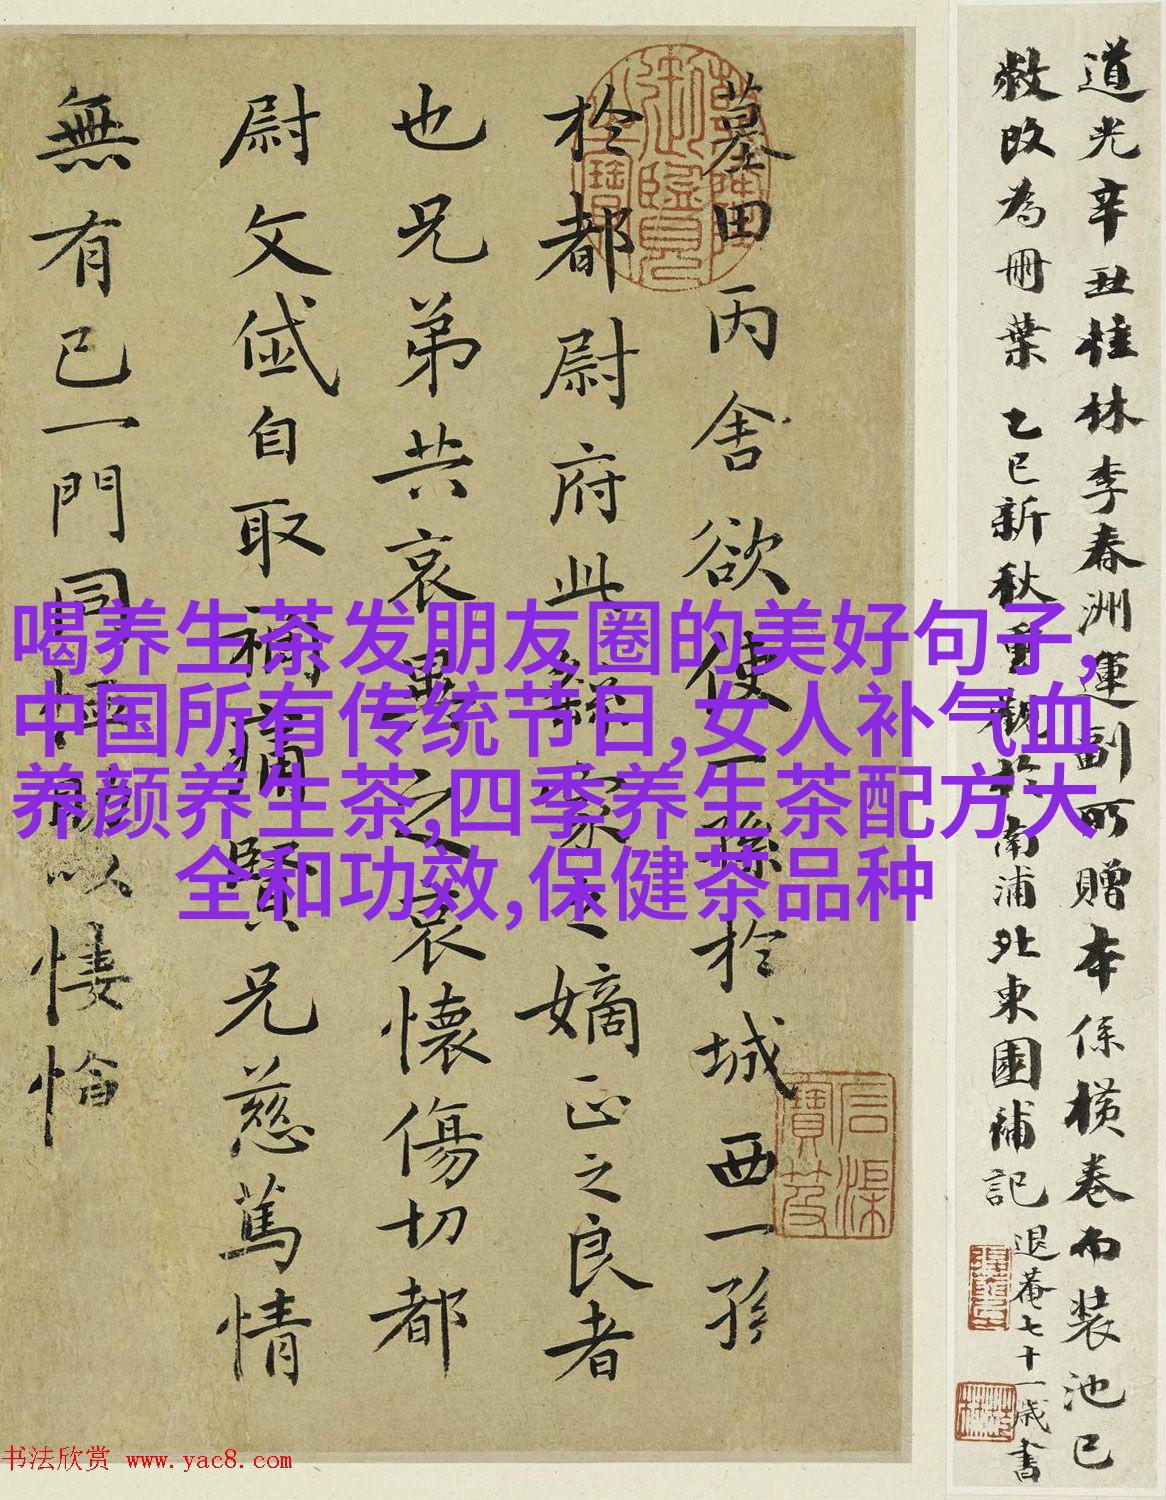 道光辛丑桂林李春洲運副所贈本係橫卷而裝池已
敝改為冊葉乙巳新秋重觀於南浦北東園補記退菴七十一歲書
墓田丙舍欲使一孫於城西一孫
於都尉府此繇家之嫡正之良者
也兄弟共哀異之哀懷傷切都
尉文岱自取禍痛賢兄慈篤情
無有已一門同恤助以悽愴
石渠寶笈
喝养生茶发朋友圈的美好句子,
中国所有传统节日,女人补气血
养颜养生茶,四季养生茶配方大
全和功效,保健茶品种
书法欣赏 www.yac8.com